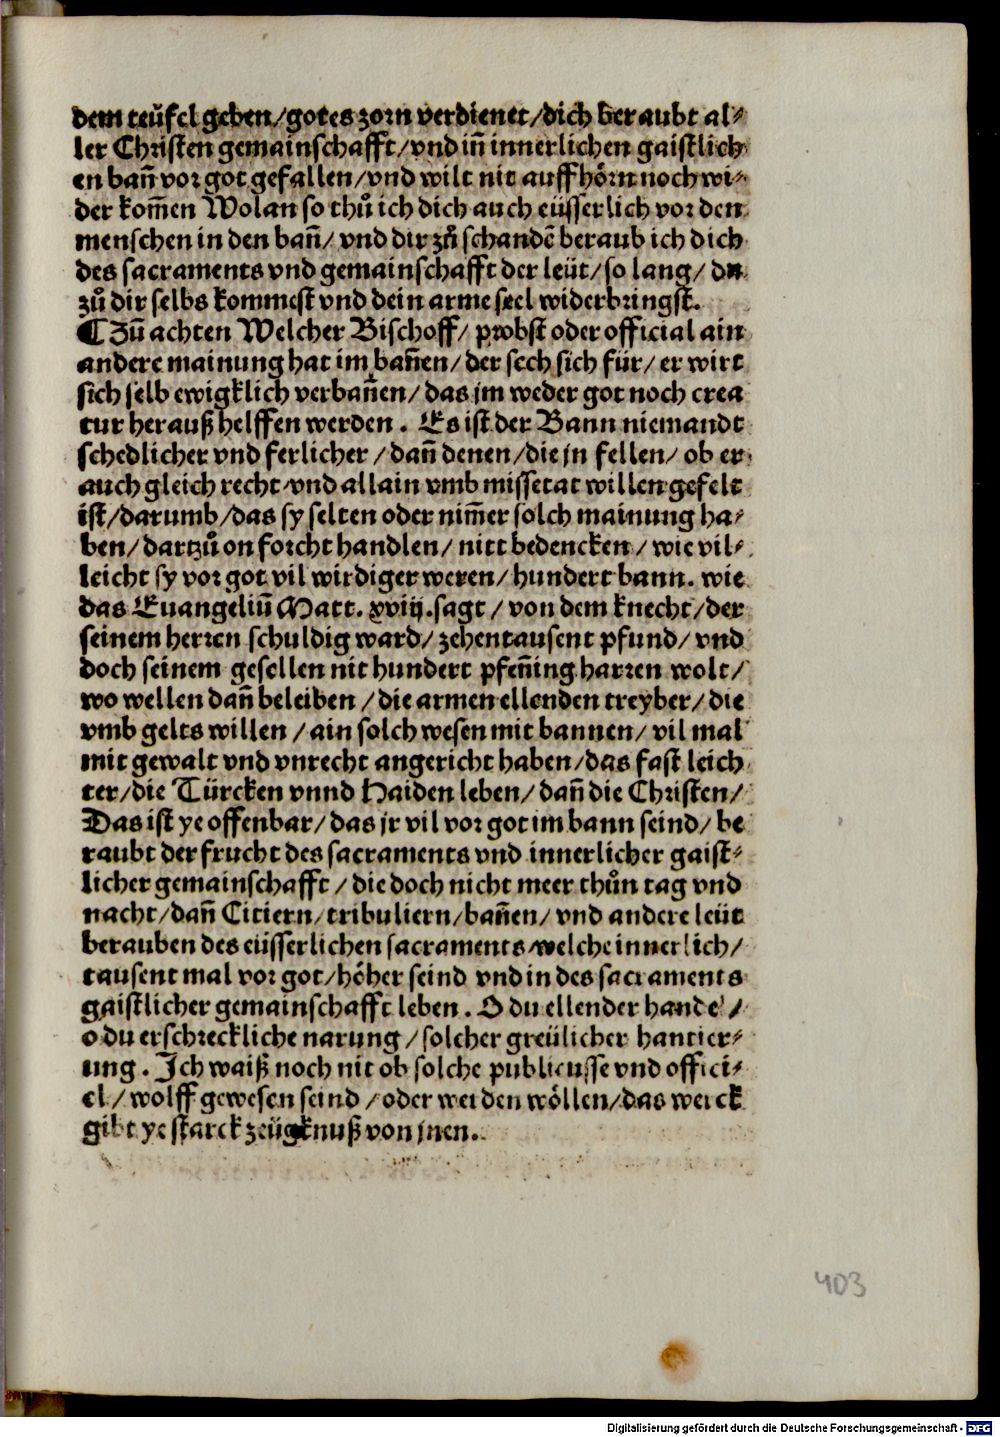 dem teüfel geben/gotes zorn verdienet/dich beraubt al⸗
ler Christen gemainschafft/vnd in̄ innerlichen gaistlich
en bañ vor got gefallen/vnd wilt nit auffhörn noch wi⸗
der kom̄en Wolan so thů ich dich auch eüsserlich vor den
menschen in den bañ/ vnd dir zů schandē beraub ich dich
des sacraments vnd gemainschafft der leüt/so lang/ du
zů dir selbs kommest vnd dein arme seel widerbringst.
¶Zū achten Welcher Bischoff/ probst oder official ain
andere mainung hat im bañen/der sech sich für/ er wirt
sich selb ewigklich verbañen/das jm weder got noch crea
tur herauß helffen werden. Es ist der Bann niemandt
schedlicher vnd ferlicher/dañ denen/die jn fellen/ ob er
auch gleich recht vnd allain vmb missetat willen gefelt
ist/darumb/das sy selten oder nim̄er solch mainung ha⸗
ben/dartzů on forcht handlen/ nitt bedencken/ wie vil⸗
leicht sy vor got vil wirdiger weren/hundert bann. wie
das Euangeliū Matt. xviij.sagt/von dem knecht/der
seinem herren schuldig ward/zehentausent pfund/vnd
doch seinem gesellen nit hundert pfen̄ing harren wolt/
wo wellen dañ beleiben/die armen ellenden treyber/die
vmb gelts willen/ain solch wesen mit bannen/vil mal
mit gewalt vnd vnrecht angericht haben/das fast leich
ter/die Türcken vnnd Haiden leben/dañ die Christen/
Das ist ye offenbar/das jr vil vor got im bann seind/be
raubt der frucht des sacraments vnd innerlicher gaist⸗
licher gemainschafft/die doch nicht meer thůn tag vnd
nacht/dañ Citiern/tribuliern/bañen/vnd andere leüt
berauben des eüsserlichen sacraments/welche innerlich/
tausent mal vor got/höher seind vnd in des sacraments
gaistlicher gemainschafft leben. O du ellender handel/
o du erschreckliche narung/solcher greülicher hantier⸗
ung. Ich waiß noch nit ob solche publicusse vnd offici⸗
el/wolff gewesen seind/oder werden wöllen/das werck
gibt ye starck zeügknuß von jnen.
403
Digitalisierung gefördert durch die Deutsche Forschungsgemeinschaft - DFG